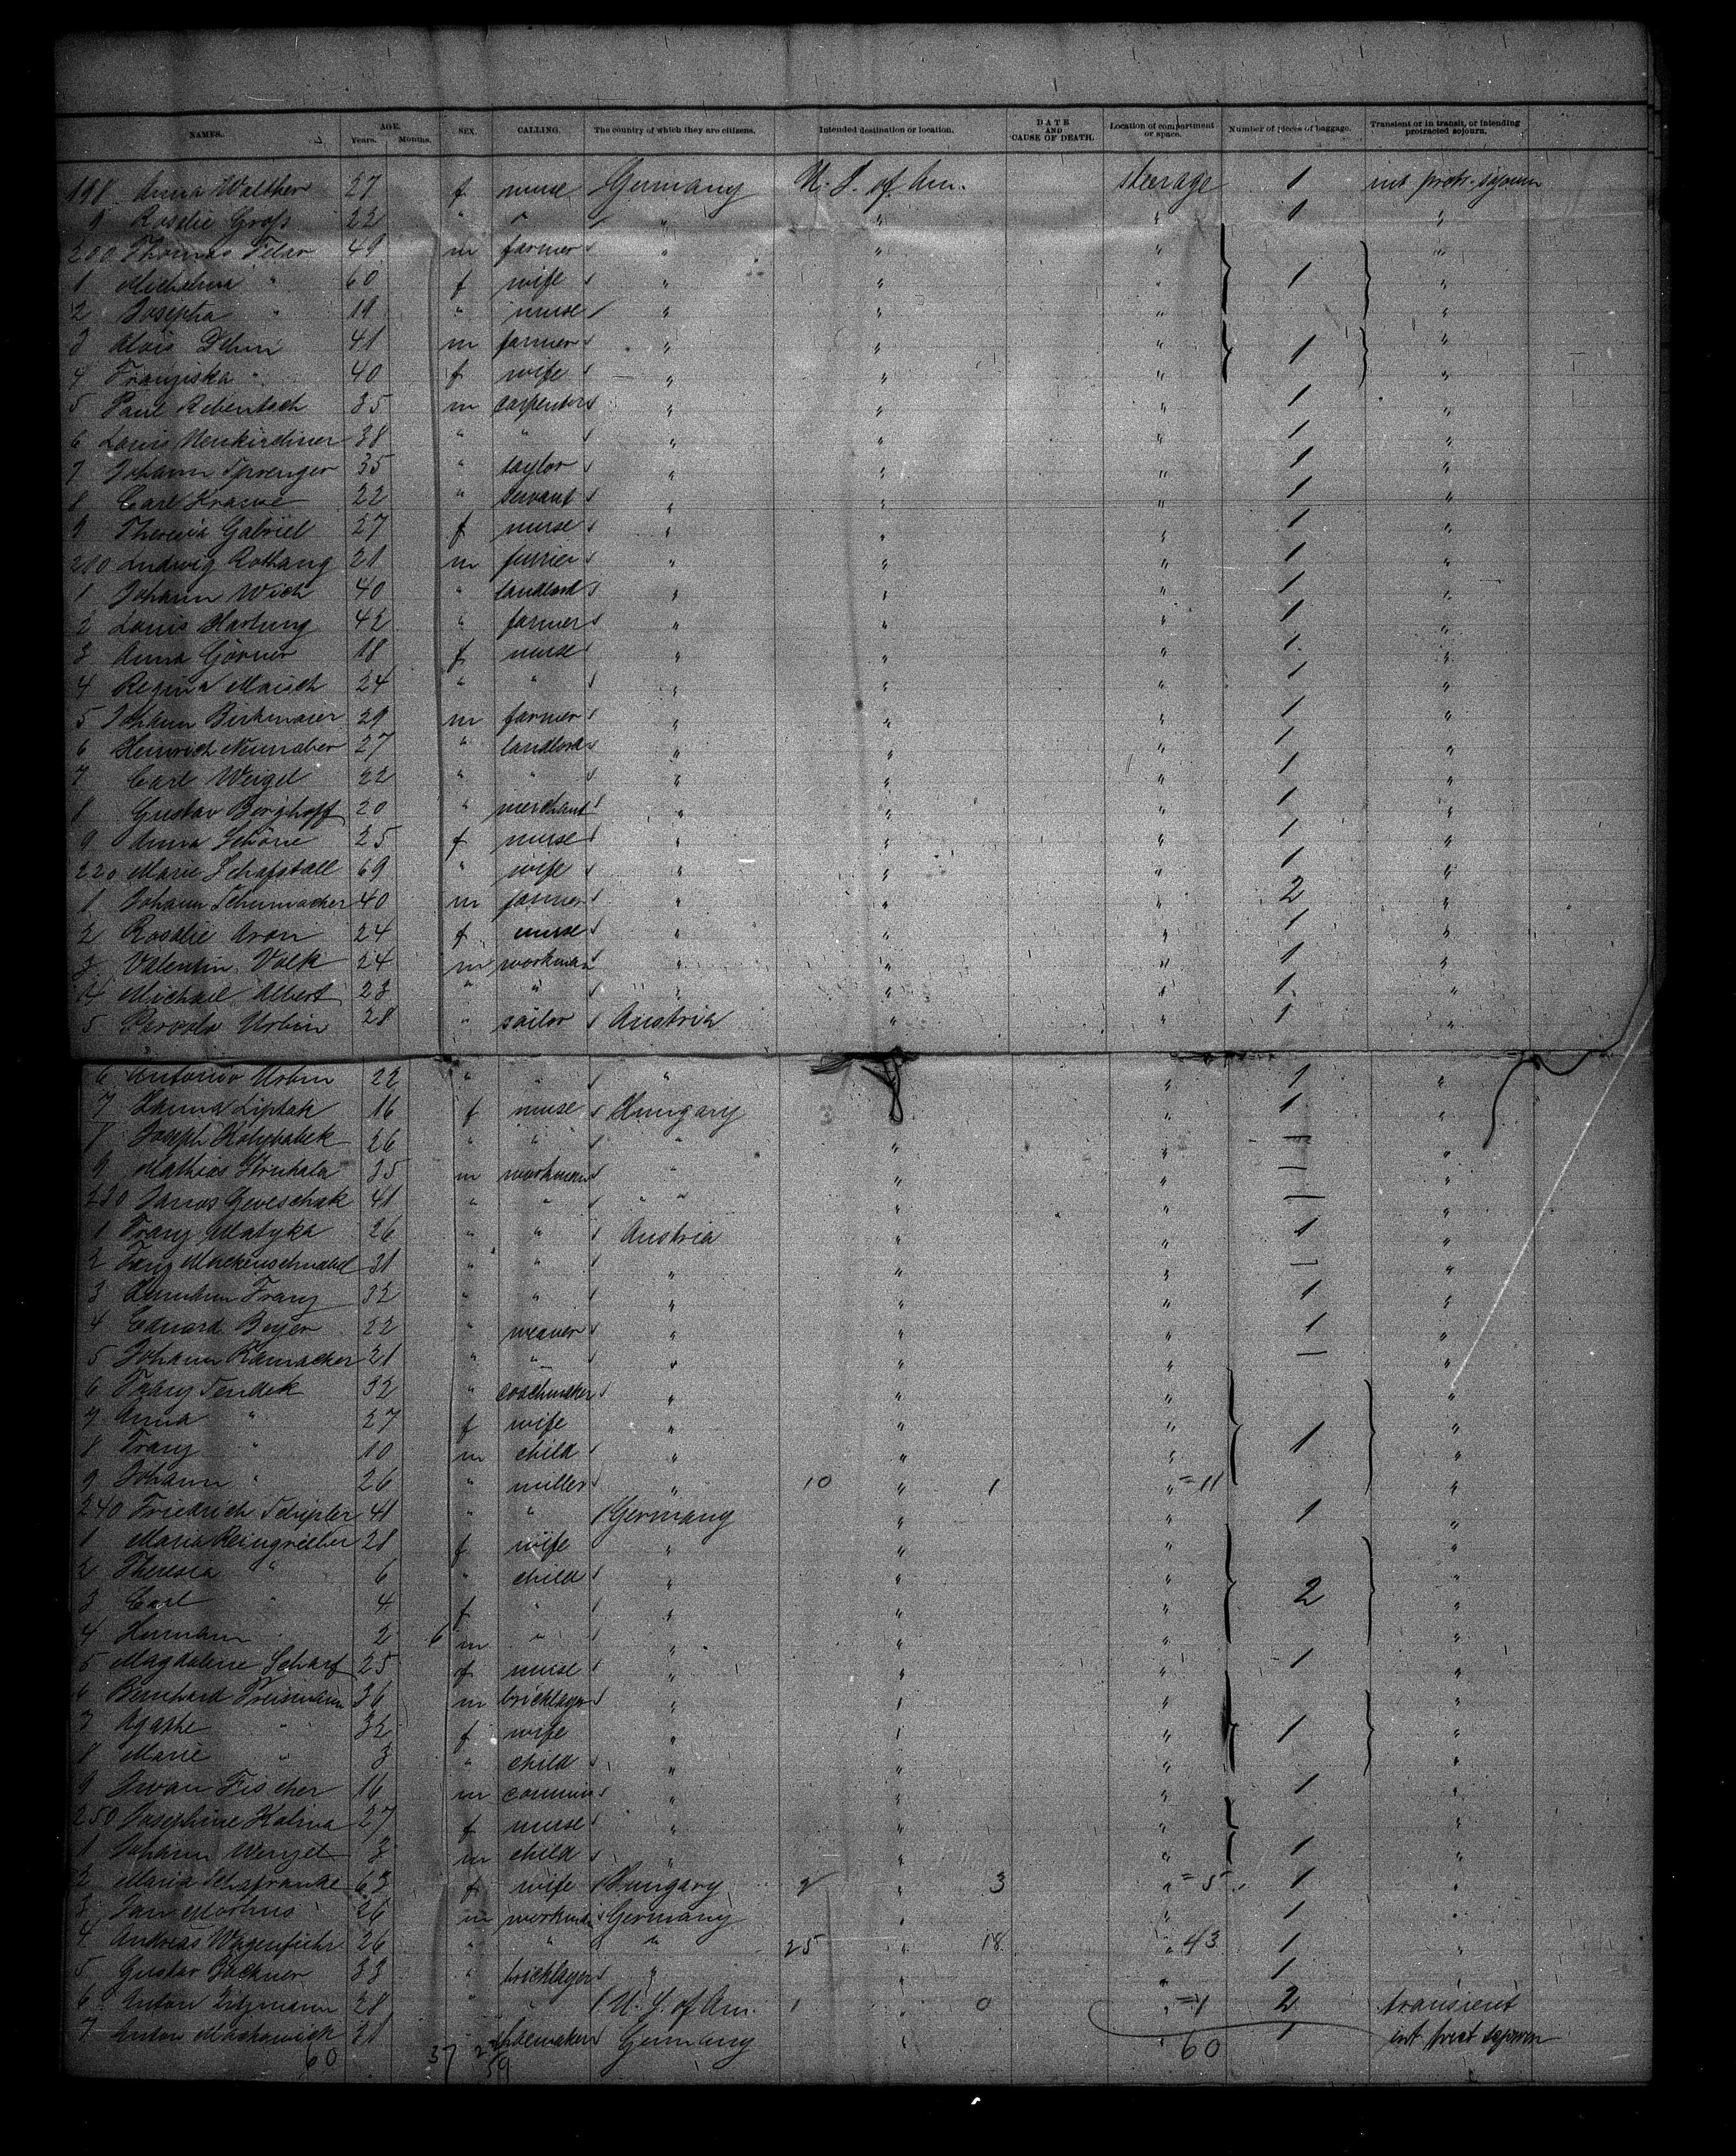 NAMES. AGE. Years. Months. SEX. CALLING. The country of which they are citizens. Intended destination or location. DATE AND CAUSE OF DEATH. Location of compartment or space. Number of pieces of baggage. Transient or in transit, or intending protracted sojourn.
198 Anna Walther 27 f nurse Germany U. S. of Am. steerage 1 int. protr. sojourn
9 Rosalie Groß 22 " " " " " 1 "
200 Thomas 49 m farmer " " " "
1 60 f wife " " " 1 "
2 Josepha " 19 " nurse " " " "
3 Alois 41 m farmer " " " "
4 Franziska " 40 f wife " " " 1 "
5 Paul 35 m carpenter " " " 1 "
6 Louis Neukirchner 38 " " " " " 1 "
7 Johann Sprenger 35 " taylor " " " 1 "
8 Carl Krause 22 " servant " " " 1 "
9 Theresia Gabriel 27 f nurse " " " 1 "
210 Ludwig Rothang 21 m furrier " " " 1 "
1 Johann Wich 40 " landlord " " " 1 "
2 Louis Hartung 42 " farmer " " " 1 "
3 Anna Görner 18 f nurse " " " 1 "
4 Regina Maisch 24 " " " " " 1 "
5 Johann Birkmaier 29 m farmer " " " 1 "
6 Heinrich Neunaber 27 " landlord " " " 1 "
7 Carl Weigel 22 " " " " " 1 "
8 Gustav Berghoff 20 " merchant " " " 1 "
9 Anna Schöne 25 f nurse " " " 1 "
220 Marie Schafstall 69 " wife " " " 1 "
1 Johann Schumacher 40 m farmer " " " 2 "
2 Rosalie Aron 24 f nurse " " " 1 "
3 Valentin Volk 24 m workman " " " 1 "
4 Michael Albert 23 " " " " " 1 "
5 Urbin 28 " sailor Austria " " 1 "
6 Antonio Urbin 22 " " " " 1 "
7 Liptak 16 f nurse Hungary " " 1 "
8 Joseph 26 " " " " " 1 "
9 Mathias 35 m workman " " " 1 "
230 Janos 41 " " " " " " 1 "
1 Franz Matyka 26 " " Austria " " 1 "
2 Franz 31 " " " " " 1 "
3 Franz 32 " " " " " 1 "
4 Eduard Beyer 22 " weaver " " " 1 "
5 Johann 21 " " " " " 1 "
6 Franz 32 " coachmaker " " " "
7 Anna " 27 f wife " " " "
8 Franz " 10 m child " " " 1 "
9 Johann " 26 " miller " 10 " 1 " = 11 "
240 Friedrich 41 " " Germany " " 1 "
1 Maria 28 f wife " " " "
2 Theresia " 6 " child " " " "
3 Carl " 4 f " " " " 2 "
4 Hermann " 2 6 m " " " " "
5 Magdalene Scharf 25 f nurse " " " 1 "
6 Bernhard 36 m bricklayer " " " "
7 Agathe " 32 f wife " " " 1 "
8 Marie " 3 " child " " " "
9 Iwan Fischer 16 m commis " " " 1 "
250 Josephine Kalina 27 f nurse " " " "
1 Johann Wenzel 3 m child " " " 1 "
2 Maria 63 f wife Hungary 2 " 3 " = 5 1 "
3 Jan 26 m workman Germany " " 1 "
4 Andreas Wagenführ 26 " " " 25 " 18 " 43 1 "
5 Gustav 33 " bricklayer " " " 1 "
6 Anton 28 " " U. S. of Am. 1 " 0 " = 1 2 transient
7 Anton 21 shoemaker Germany " 1 int. protr. sojourn
60 37 59 60